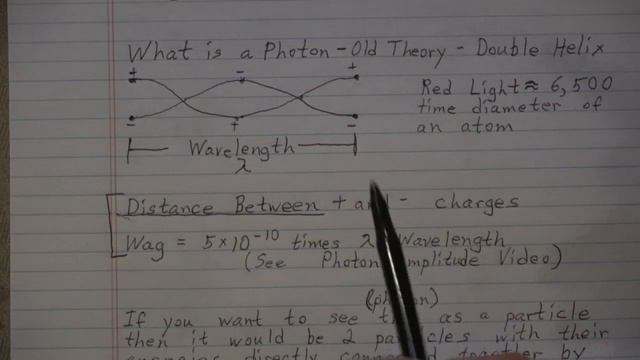 What is a Photon - Old Theory - Double Helix
+ - +
- + -
Red Light ≈ 6,500
time diameter of
an atom
Wavelength
λ
Distance Between + and - charges
Wag = 5×10⁻¹⁰ times λ Wavelength
(See Photon Amplitude Video)
(photon)
If you want to see as a particle
then it would be 2 particles with their
directly together by